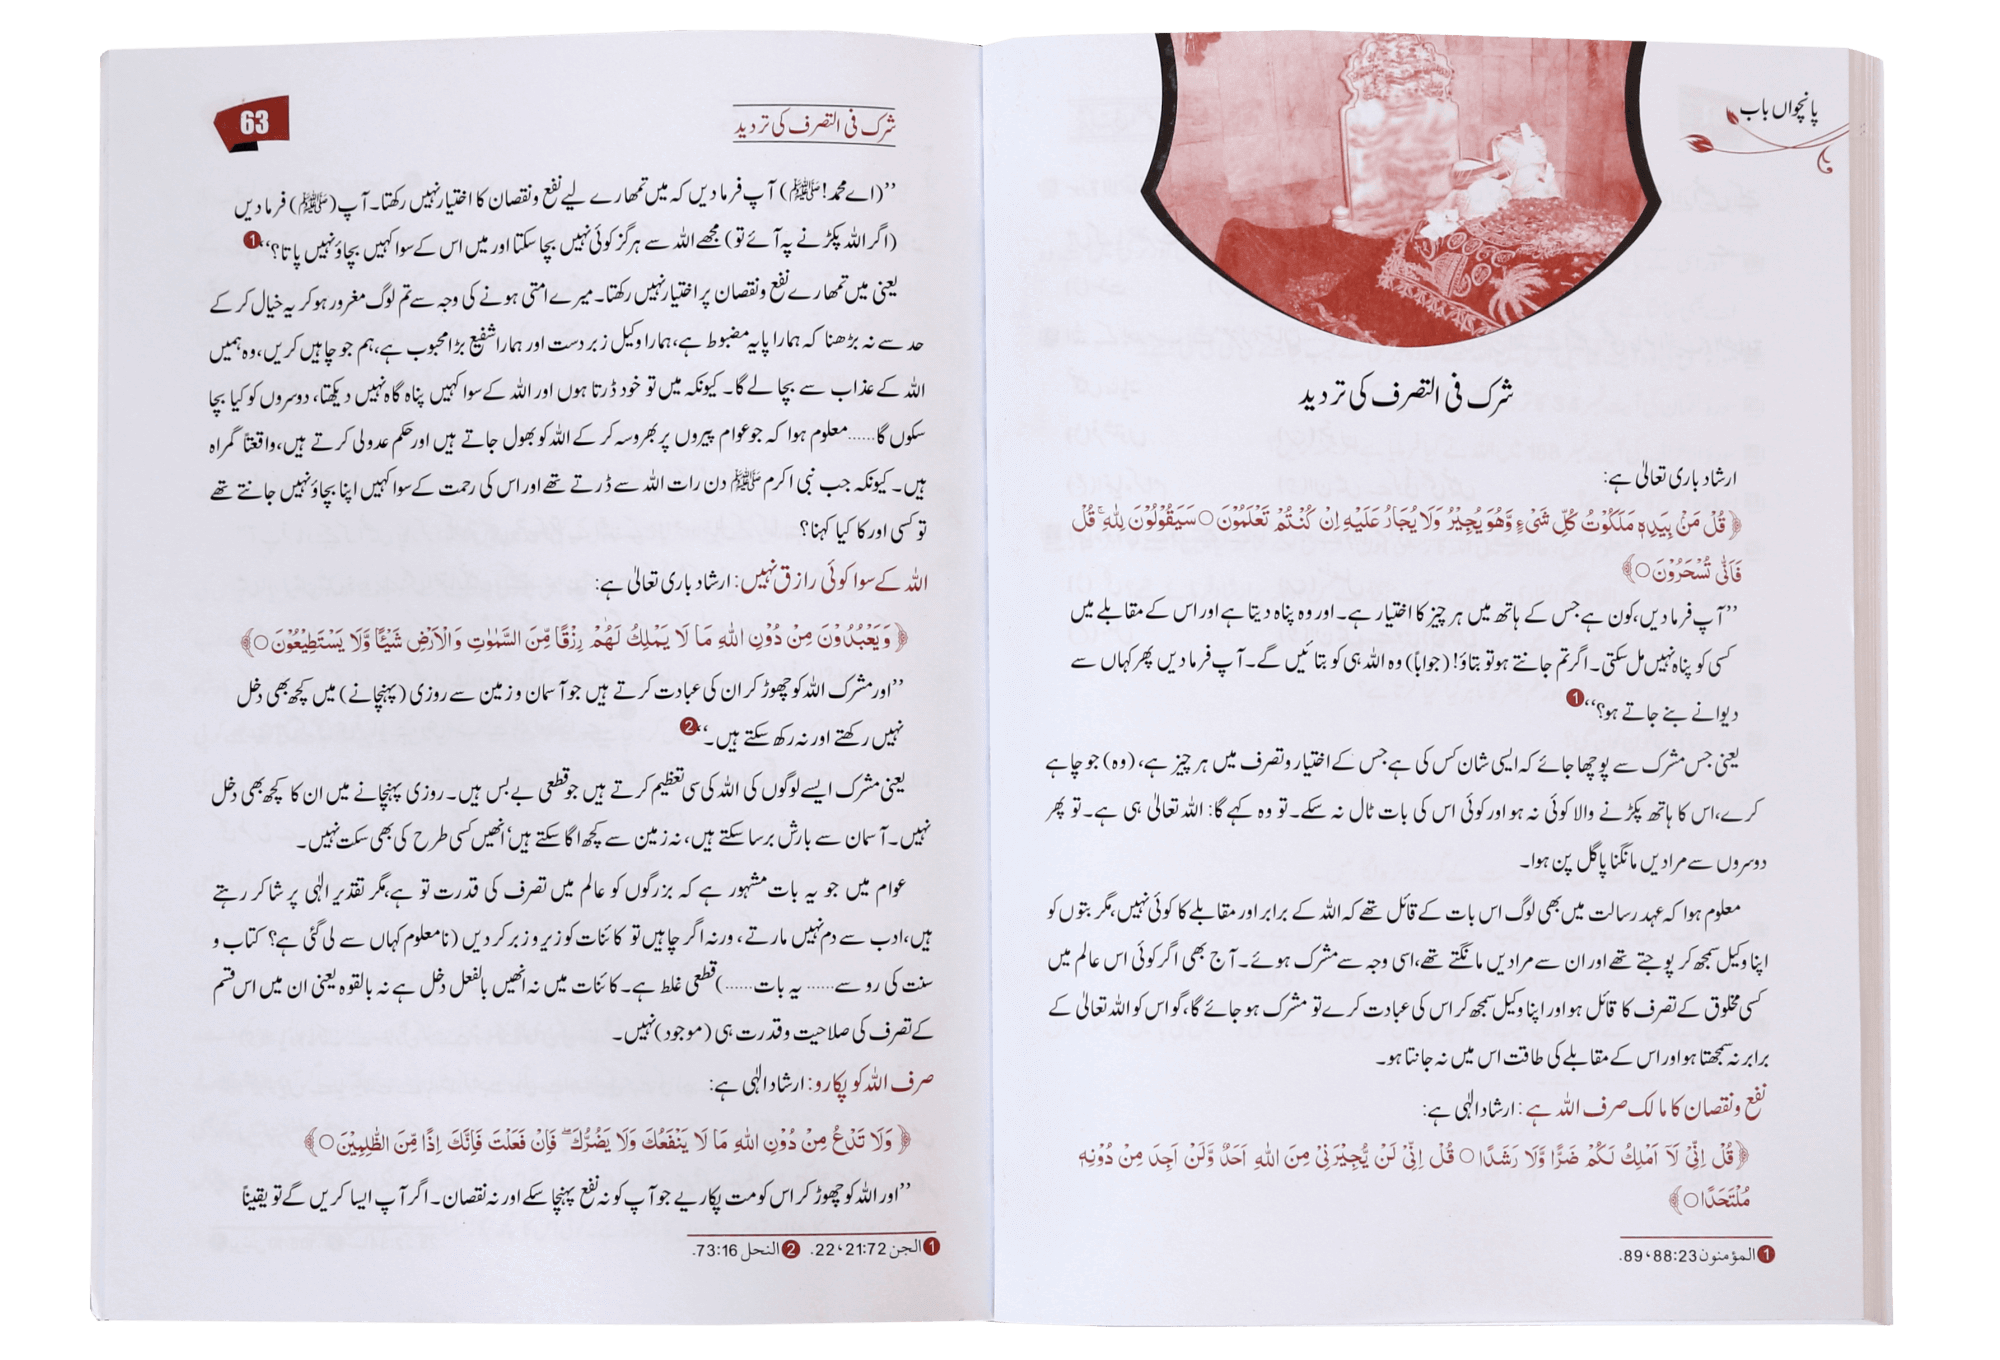 پانچواں باب
شرک فی التصرف کی تردید
ارشاد باری تعالیٰ ہے:
﴿قُلْ مَنْۢ بِيَدِهٖ مَلَكُوْتُ كُلِّ شَيْءٍ وَّهُوَ يُجِيْرُ وَلَا يُجَارُ عَلَيْهِ اِنْ كُنْتُمْ تَعْلَمُوْنَ○ سَيَقُوْلُوْنَ لِلّٰهِ ۚ قُلْ
فَاَنّٰى تُسْحَرُوْنَ○﴾
’’آپ فرما دیں، کون ہے جس کے ہاتھ میں ہر چیز کا اختیار ہے۔ اور وہ پناہ دیتا ہے اور اس کے مقابلے میں
کسی کو پناہ نہیں مل سکتی۔ اگر تم جانتے ہو تو بتاؤ! (جواباً) وہ اللہ ہی کو بتائیں گے۔ آپ فرما دیں پھر کہاں سے
دیوانے بنے جاتے ہو؟‘‘ 1
یعنی جس مشرک سے پوچھا جائے کہ ایسی شان کس کی ہے جس کے اختیار و تصرف میں ہر چیز ہے، (وہ) جو چاہے
کرے، اس کا ہاتھ پکڑنے والا کوئی نہ ہو اور کوئی اس کی بات ٹال نہ سکے۔ تو وہ کہے گا: اللہ تعالیٰ ہی ہے۔ تو پھر
دوسروں سے مرادیں مانگنا پاگل پن ہوا۔
معلوم ہوا کہ عہد رسالت میں بھی لوگ اس بات کے قائل تھے کہ اللہ کے برابر اور مقابلے کا کوئی نہیں، مگر بتوں کو
اپنا وکیل سمجھ کر پوجتے تھے اور ان سے مرادیں مانگتے تھے، اسی وجہ سے مشرک ہوئے۔ آج بھی اگر کوئی اس عالم میں
کسی مخلوق کے تصرف کا قائل ہو اور اپنا وکیل سمجھ کر اس کی عبادت کرے تو مشرک ہو جائے گا، گو اس کو اللہ تعالیٰ کے
برابر نہ سمجھتا ہو اور اس کے مقابلے کی طاقت اس میں نہ جانتا ہو۔
نفع و نقصان کا مالک صرف اللہ ہے: ارشاد الٰہی ہے:
﴿قُلْ اِنِّيْ لَاۤ اَمْلِكُ لَكُمْ ضَرًّا وَّلَا رَشَدًا○ قُلْ اِنِّيْ لَنْ يُّجِيْرَنِيْ مِنَ اللّٰهِ اَحَدٌ وَّلَنْ اَجِدَ مِنْ دُوْنِهٖ
مُلْتَحَدًا○﴾
1 المؤمنون 88:23، 89.
شرک فی التصرف کی تردید
63
’’(اے محمد! ﷺ) آپ فرما دیں کہ میں تمھارے لیے نفع و نقصان کا اختیار نہیں رکھتا۔ آپ (ﷺ) فرما دیں
(اگر اللہ پکڑنے پہ آئے تو) مجھے اللہ سے ہرگز کوئی نہیں بچا سکتا اور میں اس کے سوا کہیں بچاؤ نہیں پاتا؟‘‘ 1
یعنی میں تمھارے نفع و نقصان پر اختیار نہیں رکھتا۔ میرے امتی ہونے کی وجہ سے تم لوگ مغرور ہو کر یہ خیال کر کے
حد سے نہ بڑھنا کہ ہمارا پایہ مضبوط ہے، ہمارا وکیل زبردست اور ہمارا شفیع بڑا محبوب ہے، ہم جو چاہیں کریں، وہ ہمیں
اللہ کے عذاب سے بچا لے گا۔ کیونکہ میں تو خود ڈرتا ہوں اور اللہ کے سوا کہیں پناہ گاہ نہیں دیکھتا، دوسروں کو کیا بچا
سکوں گا...... معلوم ہوا کہ جو عوام پیروں پر بھروسہ کر کے اللہ کو بھول جاتے ہیں اور حکم عدولی کرتے ہیں، واقعتاً گمراہ
ہیں۔ کیونکہ جب نبی اکرم ﷺ دن رات اللہ سے ڈرتے تھے اور اس کی رحمت کے سوا کہیں اپنا بچاؤ نہیں جانتے تھے
تو کسی اور کا کیا کہنا؟
اللہ کے سوا کوئی رازق نہیں: ارشاد باری تعالیٰ ہے:
﴿وَيَعْبُدُوْنَ مِنْ دُوْنِ اللّٰهِ مَا لَا يَمْلِكُ لَهُمْ رِزْقًا مِّنَ السَّمٰوٰتِ وَالْاَرْضِ شَيْئًا وَّلَا يَسْتَطِيْعُوْنَ○﴾
’’اور مشرک اللہ کو چھوڑ کر ان کی عبادت کرتے ہیں جو آسمان و زمین سے روزی (پہنچانے) میں کچھ بھی دخل
نہیں رکھتے اور نہ رکھ سکتے ہیں۔‘‘ 2
یعنی مشرک ایسے لوگوں کی اللہ کی سی تعظیم کرتے ہیں جو قطعی بے بس ہیں۔ روزی پہنچانے میں ان کا کچھ بھی دخل
نہیں۔ آسمان سے بارش برسا سکتے ہیں، نہ زمین سے کچھ اگا سکتے ہیں‘ انھیں کسی طرح کی بھی سکت نہیں۔
عوام میں جو یہ بات مشہور ہے کہ بزرگوں کو عالم میں تصرف کی قدرت تو ہے، مگر تقدیر الٰہی پر شاکر رہتے
ہیں، ادب سے دم نہیں مارتے، ورنہ اگر چاہیں تو کائنات کو زیر و زبر کر دیں (نا معلوم کہاں سے لی گئی ہے؟ کتاب و
سنت کی رو سے...... یہ بات......) قطعی غلط ہے۔ کائنات میں نہ انھیں بالفعل دخل ہے نہ بالقوہ یعنی ان میں اس قسم
کے تصرف کی صلاحیت و قدرت ہی (موجود) نہیں۔
صرف اللہ کو پکارو: ارشاد الٰہی ہے:
﴿وَلَا تَدْعُ مِنْ دُوْنِ اللّٰهِ مَا لَا يَنْفَعُكَ وَلَا يَضُرُّكَ ۖ فَاِنْ فَعَلْتَ فَاِنَّكَ اِذًا مِّنَ الظّٰلِمِيْنَ○﴾
’’اور اللہ کو چھوڑ کر اس کو مت پکاریے جو آپ کو نہ نفع پہنچا سکے اور نہ نقصان۔ اگر آپ ایسا کریں گے تو یقیناً
1 الجن 21:72، 22. 2 النحل 73:16.